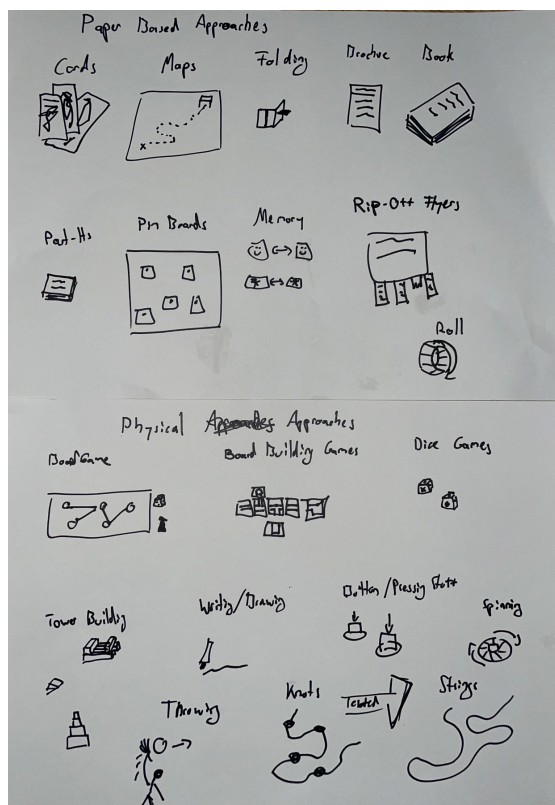 Paper Based Approaches
Cards Maps Folding Brochure Book
Post-Its Pin Boards Memory Rip-Off Flyers
Roll
Physical Approaches
Board Game Board Building Games Dice Games
Tower Building Writing/Drawing Button/Pressing Spinning
Throwing Knots Strings